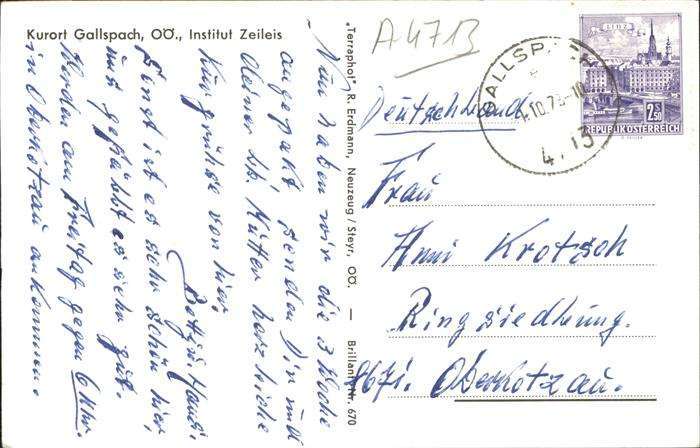 Kurort Gallspach, OÖ., Institut Zeileis
A 4713
LINZ
GALLSPACH
10.7
4713
2.50
REPUBLIK ÖSTERREICH
Deutschland
Frau
Anni Krotsch
Ringsiedlung.
8671. Oberkotzau.
"Terraphot" R. Erdmann, Neuzeug/Steyr, OÖ. — Brillant Nr. 670
Nun haben wir die 3 Woche
angepakt senden Dir und
Deiner lb. Mutter herzliche
Kurgrüße von hier.
Hansi.
Sonst ist es sehr schön hier,
uns gefällt es sehr gut.
Werden am Freitag gegen 6 Uhr.
in Oberkotzau ankommen.